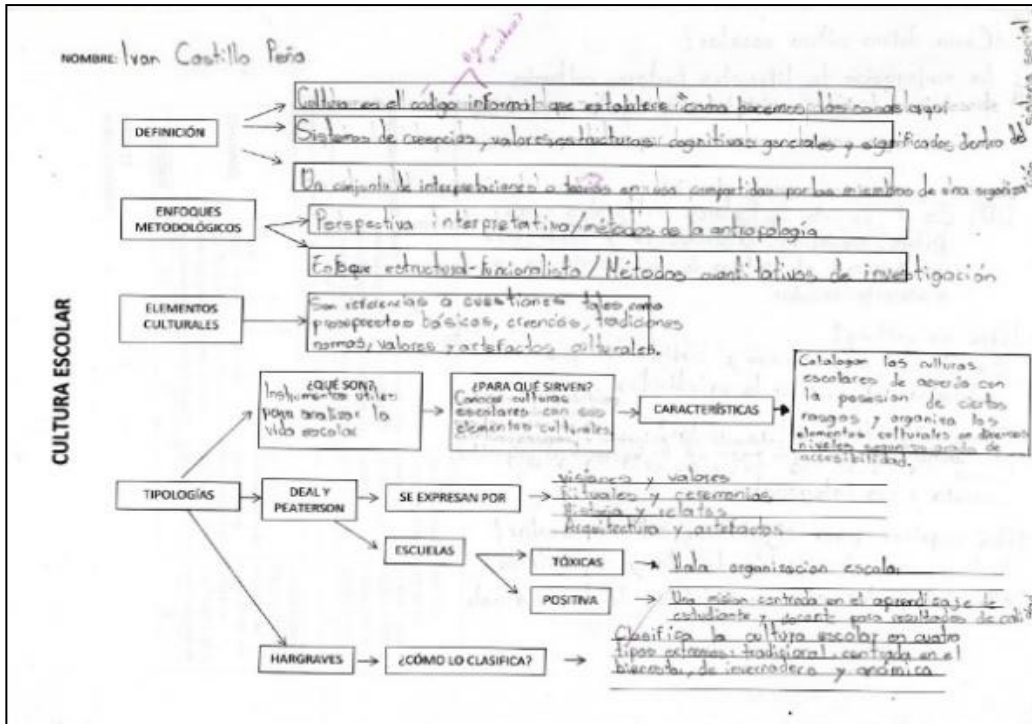 NOMBRE: Ivan Castillo Peña
CULTURA ESCOLAR
DEFINICIÓN
Cultura es el codigo informal que establece "como hacemos las cosas aqui
Sistemas de creencias, valores, estructuras cognitivas generales y significados dentro del sistema social
Un conjunto de interpretaciones o teorias en uso compartidas por los miembros de una organización
ENFOQUES
METODOLÓGICOS
Perspectiva interpretativa/métodos de la antropología
Enfoque estructural-funcionalista / Métodos cuantitativos de investigación
ELEMENTOS
CULTURALES
Son referencias a cuestiones tales como
presupuestos básicos, creencias, tradiciones
normas, valores y artefactos culturales.
TIPOLOGÍAS
¿QUÉ SON?
Instrumentos utiles
para analizar la
vida escolar
¿PARA QUÉ SIRVEN?
Conocer culturas
escolares con sus
elementos culturales.
CARACTERÍSTICAS
Catalogan las culturas
escolares de acuerdo con
la posesion de ciertos
rasgos y organiza los
elementos culturales en diversos
niveles según su grado de
accesibilidad.
DEAL Y
PEATERSON
SE EXPRESAN POR
visiones y valores
Rituales y ceremonias
Historia y relatos
Arquitectura y artefactos
ESCUELAS
TÓXICAS
Mala organizacion escolar
POSITIVA
Una mision centrada en el aprendizaje de
estudiante y docente para resultados de
HARGRAVES
¿CÓMO LO CLASIFICA?
Clasifica la cultura escolar en cuatro
tipos extremos: tradicional, centrada en el
bienestar, de invernadero y anómica